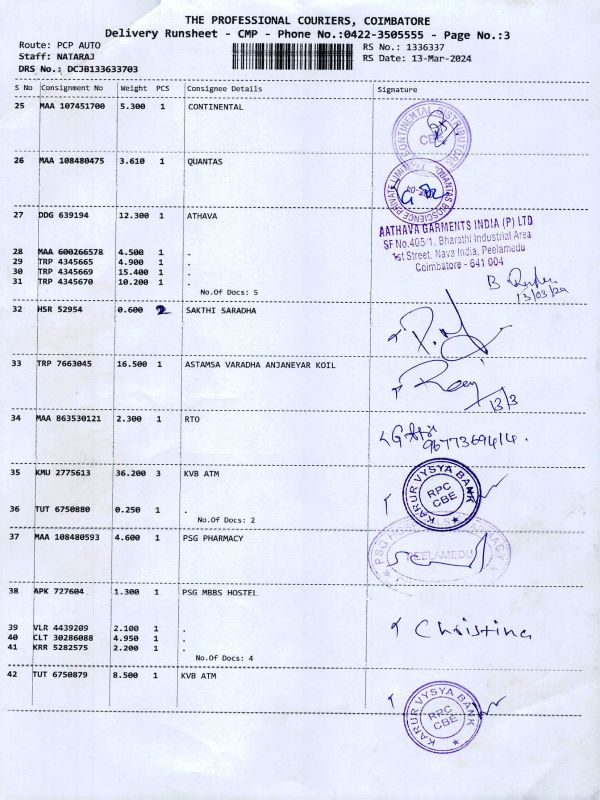 THE PROFESSIONAL COURIERS, COIMBATORE
Delivery Runsheet - CMP - Phone No.:0422-3505555 - Page No.:3
Route: PCP AUTO RS No.: 1336337
Staff: NATARAJ RS Date: 13-Mar-2024
DRS No.: DCJB133633703
S No Consignment No Weight PCS Consignee Details Signature
25 MAA 107451700 5.300 1 CONTINENTAL
CONTINENTAL DISTRIBUTORS
CBE
26 MAA 108480475 3.610 1 QUANTAS
QUANTAS BIOSCIENCE PRIVATE LIMITED
27 DDG 639194 12.300 1 ATHAVA
AATHAVA GARMENTS INDIA (P) LTD
SF No.405/1, Bharathi Industrial Area
1st Street, Nava India, Peelamedu
Coimbatore - 641 004
28 MAA 600266578 4.500 1 .
29 TRP 4345665 4.900 1 .
30 TRP 4345669 15.400 1 .
31 TRP 4345670 10.200 1 .
No.Of Docs: 5
13/03/24
32 HSR 52954 0.600 2 SAKTHI SARADHA
33 TRP 7663045 16.500 1 ASTAMSA VARADHA ANJANEYAR KOIL
13/3
34 MAA 863530121 2.300 1 RTO
35 KMU 2775613 36.200 3 KVB ATM
KARUR VYSYA BANK
RPC
CBE
36 TUT 6750880 0.250 1 .
No.Of Docs: 2
37 MAA 108480593 4.600 1 PSG PHARMACY
PEELAMEDU
38 APK 727604 1.300 1 PSG MBBS HOSTEL
39 VLR 4439209 2.100 1 .
Christina
40 CLT 30286088 4.950 1 .
41 KRR 5282575 2.200 1 .
No.Of Docs: 4
42 TUT 6750879 8.500 1 KVB ATM
KARUR VYSYA BANK
RPC
CBE